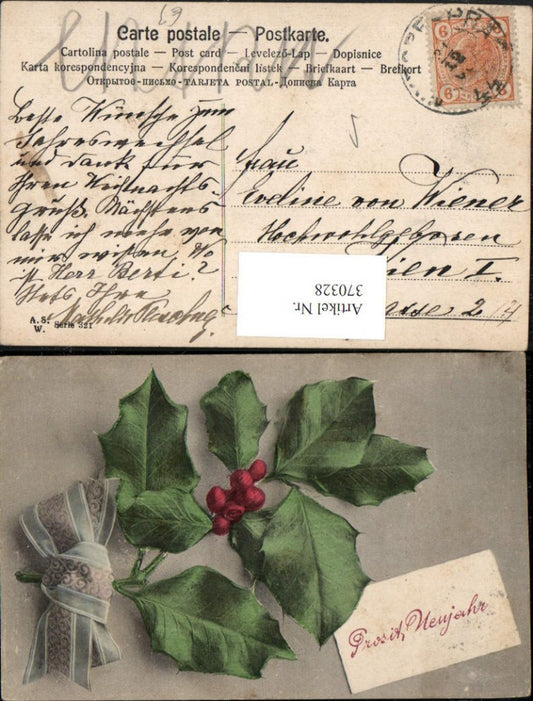 Carte postale — Postkarte.
Cartolina postale — Post card — Levelező-Lap — Dopisnice
Karta korespondencyjna — Korespondenční lístek — Briefkaart — Brefkort
Открытое-письмо - TARJETA POSTAL - Дописна Карта
63
6
6
Beste Wünsche zum
Jahreswechsel
und Dank für
Ihren Weihnachts-
gruß. Nächstens
lasse ich mehr von
mir wissen. Wo
ist Herr Berti?
Stets Ihre
Frau
Eveline von Wiener
Hochwohlgeboren
Wien I.
2
A.S.
W. Serie 321
Artikel Nr.
370328
Prosit Neujahr